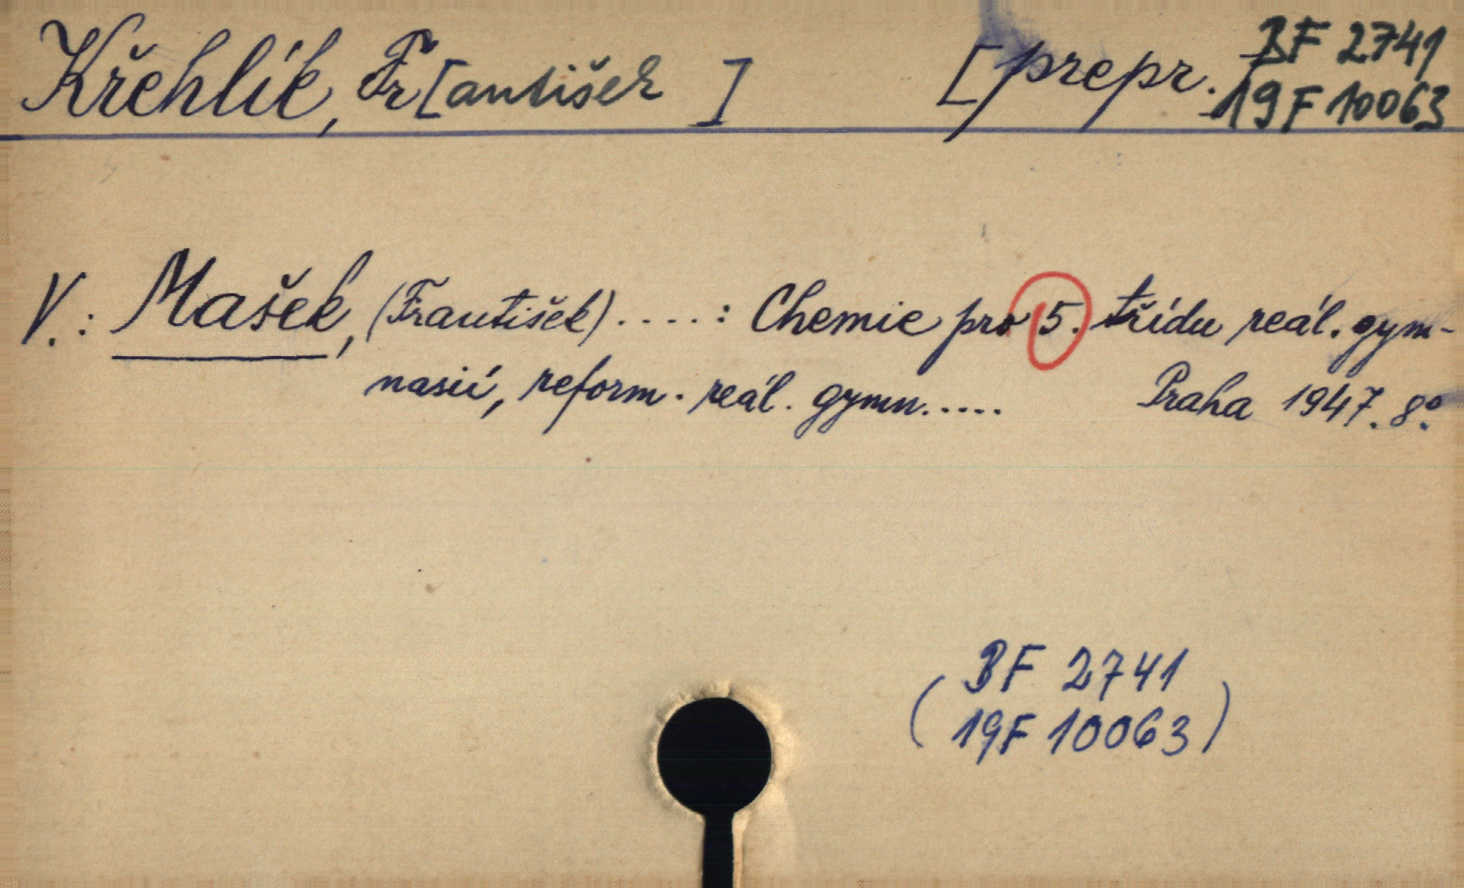 Křehlík, Fr[antišek ] [prepr. BF 2741
19 F 10063
V.: Mašek, (František).....: Chemie pro 5. třídu reál. gym-
nasií, reform. reál. gymn..... Praha 1947. 8°.
BF 2741
(19F 10063)